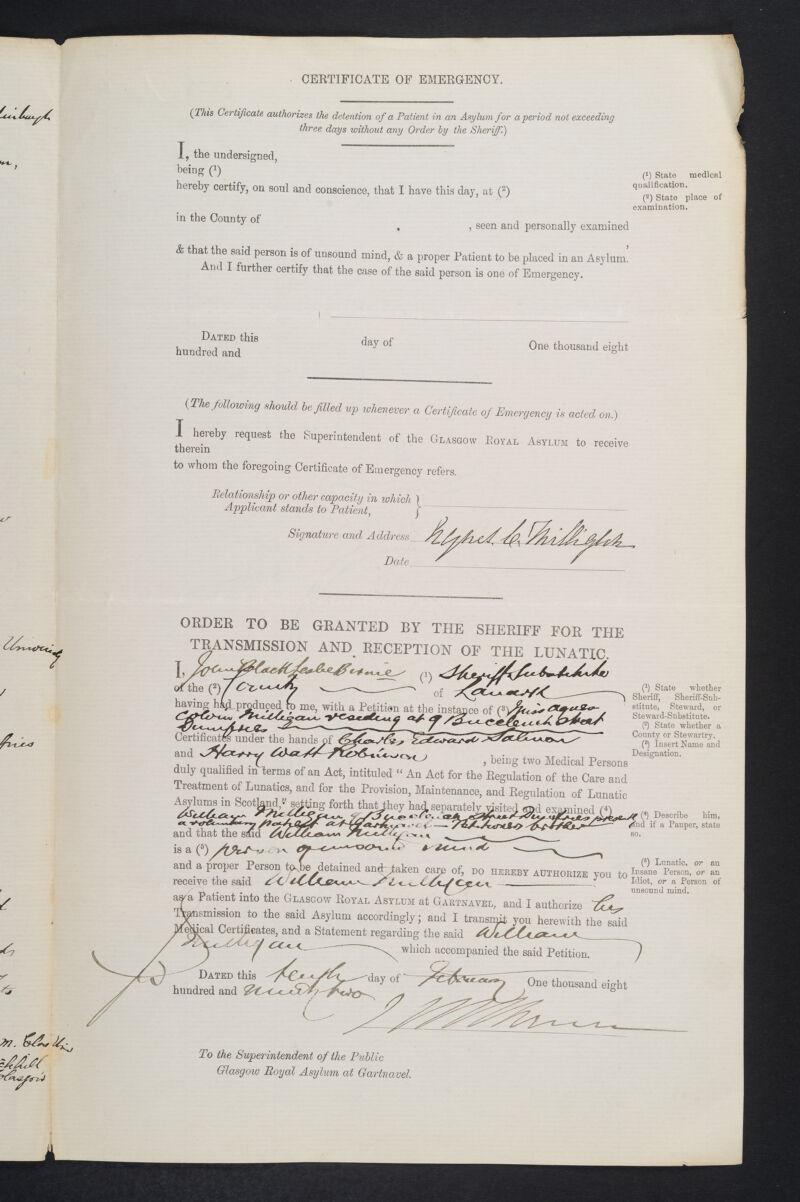 CERTIFICATE OF EMERGENCY.
(This Certificate authorizes the detention of a Patient in an Asylum for a period not exceeding
three days without any Order by the Sheriff.)
I, the undersigned,
being (¹)
hereby certify, on soul and conscience, that I have this day, at (²)
in the County of
, seen and personally examined
,
& that the said person is of unsound mind, & a proper Patient to be placed in an Asylum.
And I further certify that the case of the said person is one of Emergency.
(¹) State medical
qualification.
(²) State place of
examination.
DATED this day of One thousand eight
hundred and
(The following should be filled up whenever a Certificate of Emergency is acted on.)
I hereby request the Superintendent of the GLASGOW ROYAL ASYLUM to receive
therein
to whom the foregoing Certificate of Emergency refers.
Relationship or other capacity in which
Applicant stands to Patient,
Signature and Address Agnes C. Milligan
Date
ORDER TO BE GRANTED BY THE SHERIFF FOR THE
TRANSMISSION AND RECEPTION OF THE LUNATIC.
I, John Black Leslie Birnie (¹) Sheriff Substitute
of the (²) County of Lanark
having had produced to me, with a Petition at the instance of (³) Miss Agnes
Milligan residing at 9 Buccleuch Street
Dumfries
Certificates under the hands of Charles Edward Salmon
and Harry Watt Robinson , being two Medical Persons
duly qualified in terms of an Act, intituled "An Act for the Regulation of the Care and
Treatment of Lunatics, and for the Provision, Maintenance, and Regulation of Lunatic
Asylums in Scotland," setting forth that they had separately visited and examined (⁴)
William Milligan 9 Buccleuch Street Dumfries presently
a voluntary patient at Gartnavel - Petitioners brother
and that the said William Milligan
is a (⁵) person of unsound mind
and a proper Person to be detained and taken care of, DO HEREBY AUTHORIZE you to
receive the said William Milligan
as a Patient into the GLASGOW ROYAL ASYLUM AT GARTNAVEL, and I authorize his
Transmission to the said Asylum accordingly; and I transmit you herewith the said
Medical Certificates, and a Statement regarding the said William
Milligan which accompanied the said Petition.
DATED this tenth day of February One thousand eight
hundred and ninety two
(¹) State whether
Sheriff, Sheriff-Sub-
stitute, Steward, or
Steward-Substitute.
(²) State whether a
County or Stewartry.
(³) Insert Name and
Designation.
(⁴) Describe him,
and if a Pauper, state
so.
(⁵) Lunatic, or an
Insane Person, or an
Idiot, or a Person of
unsound mind.
To the Superintendent of the Public
Glasgow Royal Asylum at Gartnavel.